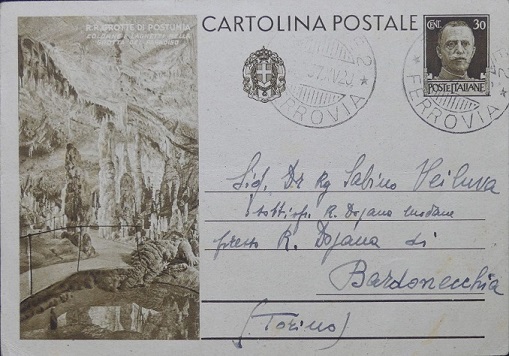 R.R. GROTTE DI POSTUMIA
COLONNE E
GROTTA DEL PARADISO
CARTOLINA POSTALE
CENT. 30
POSTE ITALIANE
FERROVIA
FERROVIA
Sig. Dr Rg Sabino Veiluva
R. Dogana Modane
presso R. Dogana di
Bardonecchia
(Torino)